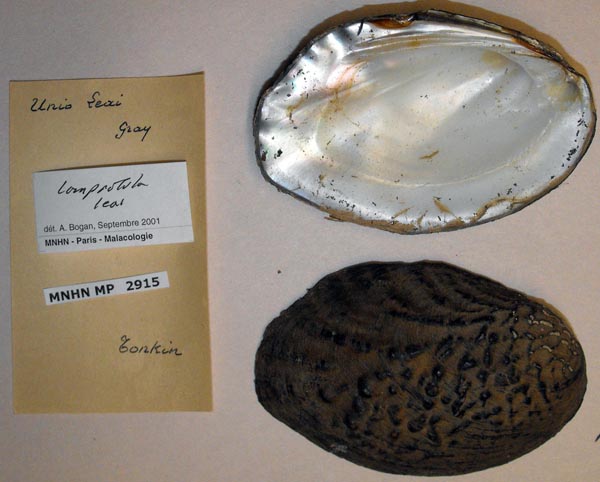 Unio Leai
Gray
Lamprotula
leai
dét. A. Bogan, Septembre 2001
MNHN - Paris - Malacologie
MNHN MP 2915
Tonkin